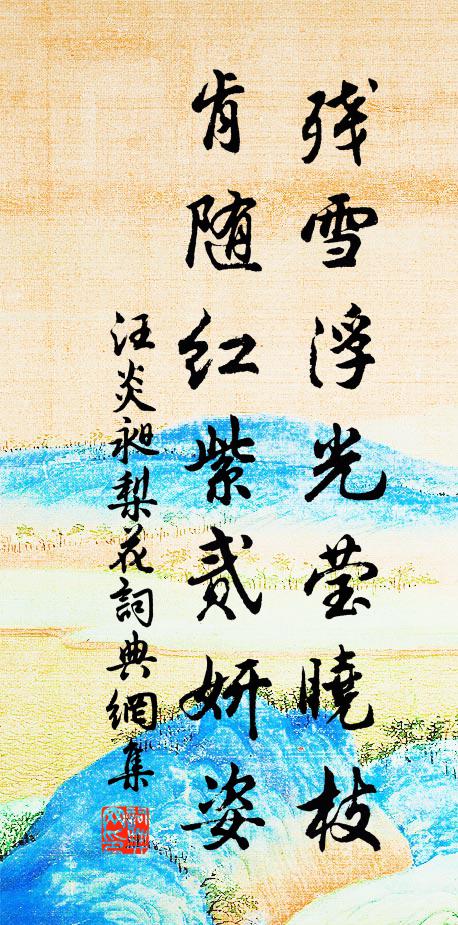 残雪浮光莹曉枝
肯随红紫貳妍姿
汪炎昶梨花詞典網集